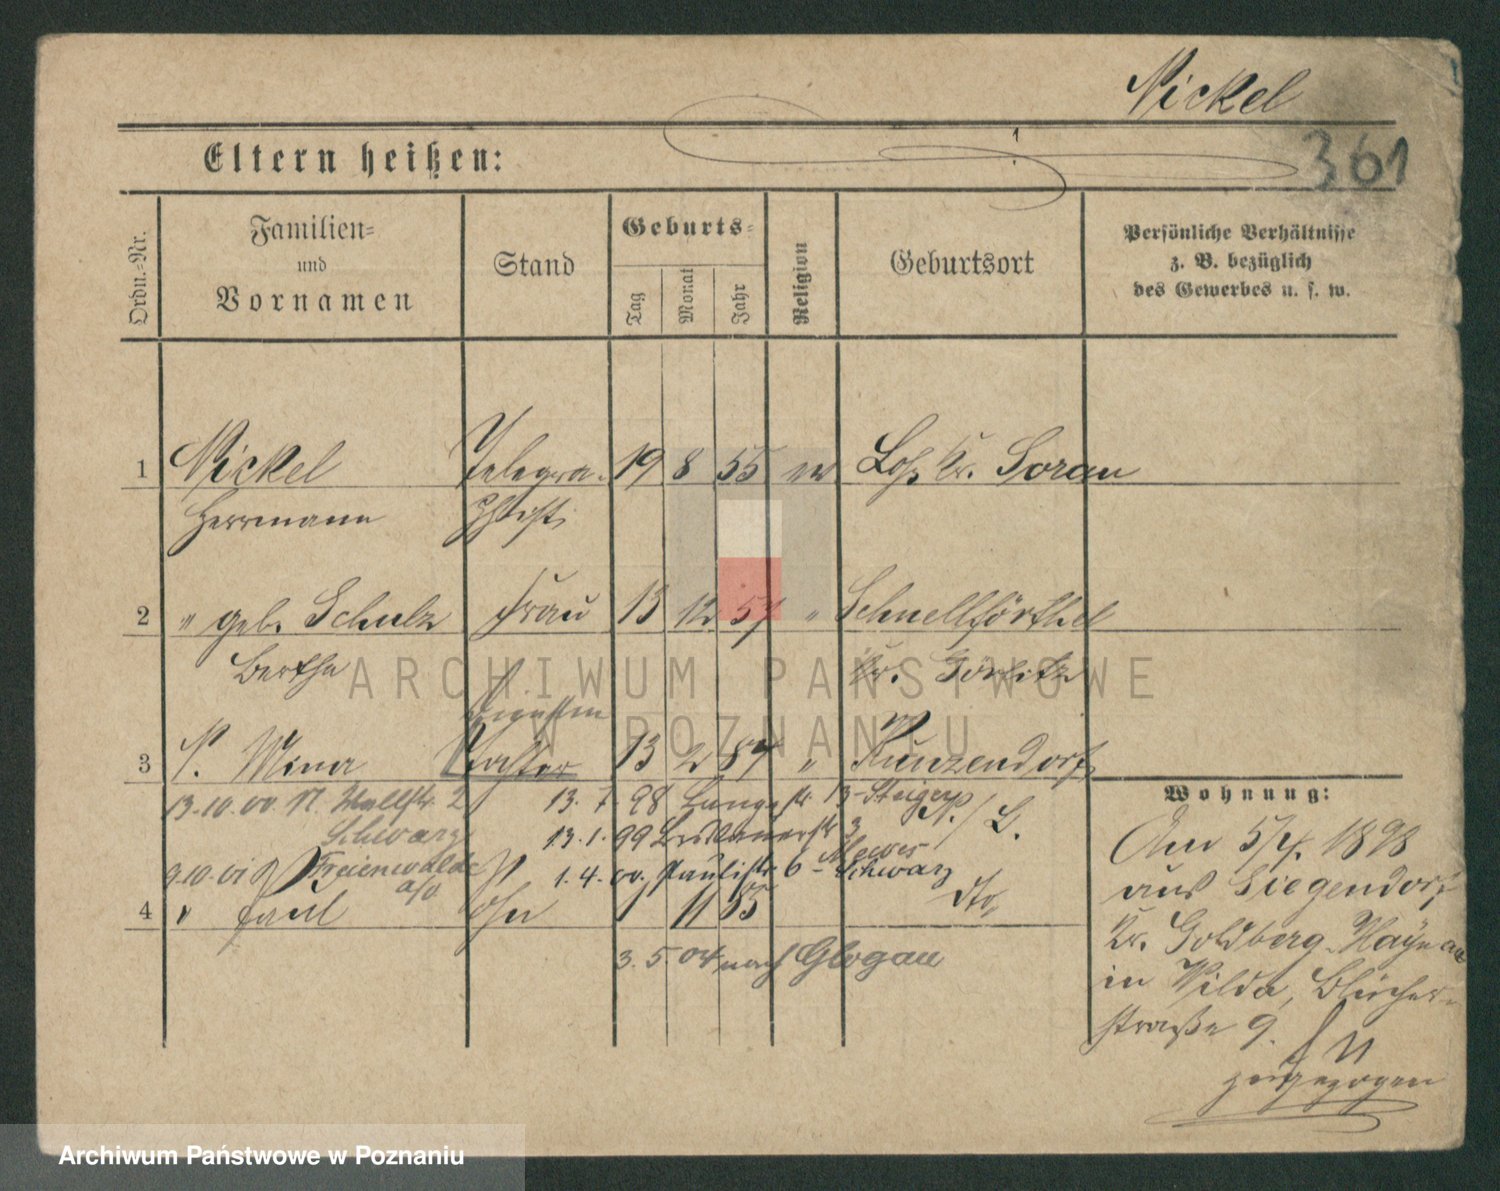 Nickel
361
Eltern heißen:
Ordn.-Nr.
Familien-
und
Vornamen
Stand
Geburts-
Tag
Monat
Jahr
Religion
Geburtsort
Persönliche Verhältnisse
z. B. bezüglich
des Gewerbes u. s. w.
1 Nickel Telegra- 19 8 55 ev Loß Kr. Sorau
Herrmann phist
2 " geb. Schulz Frau 13 12 57 " Schnellförthel
Bertha Kr. Görlitz
3 N. Mina Tochter 13 2 87 " Kunzendorf
Wohnung:
13.10.00. N. Wallstr. 2 13. 7. 98 Langestr 13 - Steiger
Schwarz 13. 1. 99 3
9.10.01 Freienwalde 1. 4. 00. Paulistr 6 - Schwarz
a/O
4 " Paul Sohn 1 11 55 dto,
3. 5. 04 nach Glogau
Am 5/4. 1898
aus Siegendorf
Kr. Goldberg-Haynau
in Wilda, Blücher-
straße 9.
zugezogen
ARCHIWUM PAŃSTWOWE
W POZNANIU
Archiwum Państwowe w Poznaniu